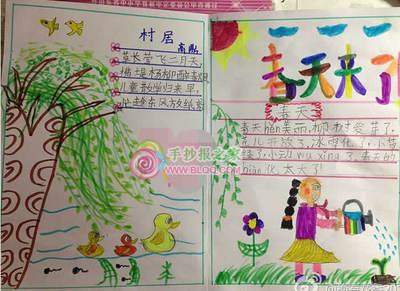 村居
高鼎
草长莺飞二月天,
拂堤杨柳醉春烟
儿童散学归来早,
忙趁东风放纸鸢
春天来了
春天
春天hěn美丽,柳树发芽了,
花儿开放了,冰雪化了,小草
绿了,小动wu xing了,春天的
biàn化,太大了!
手抄报之家
WWW.BLQQ.COM